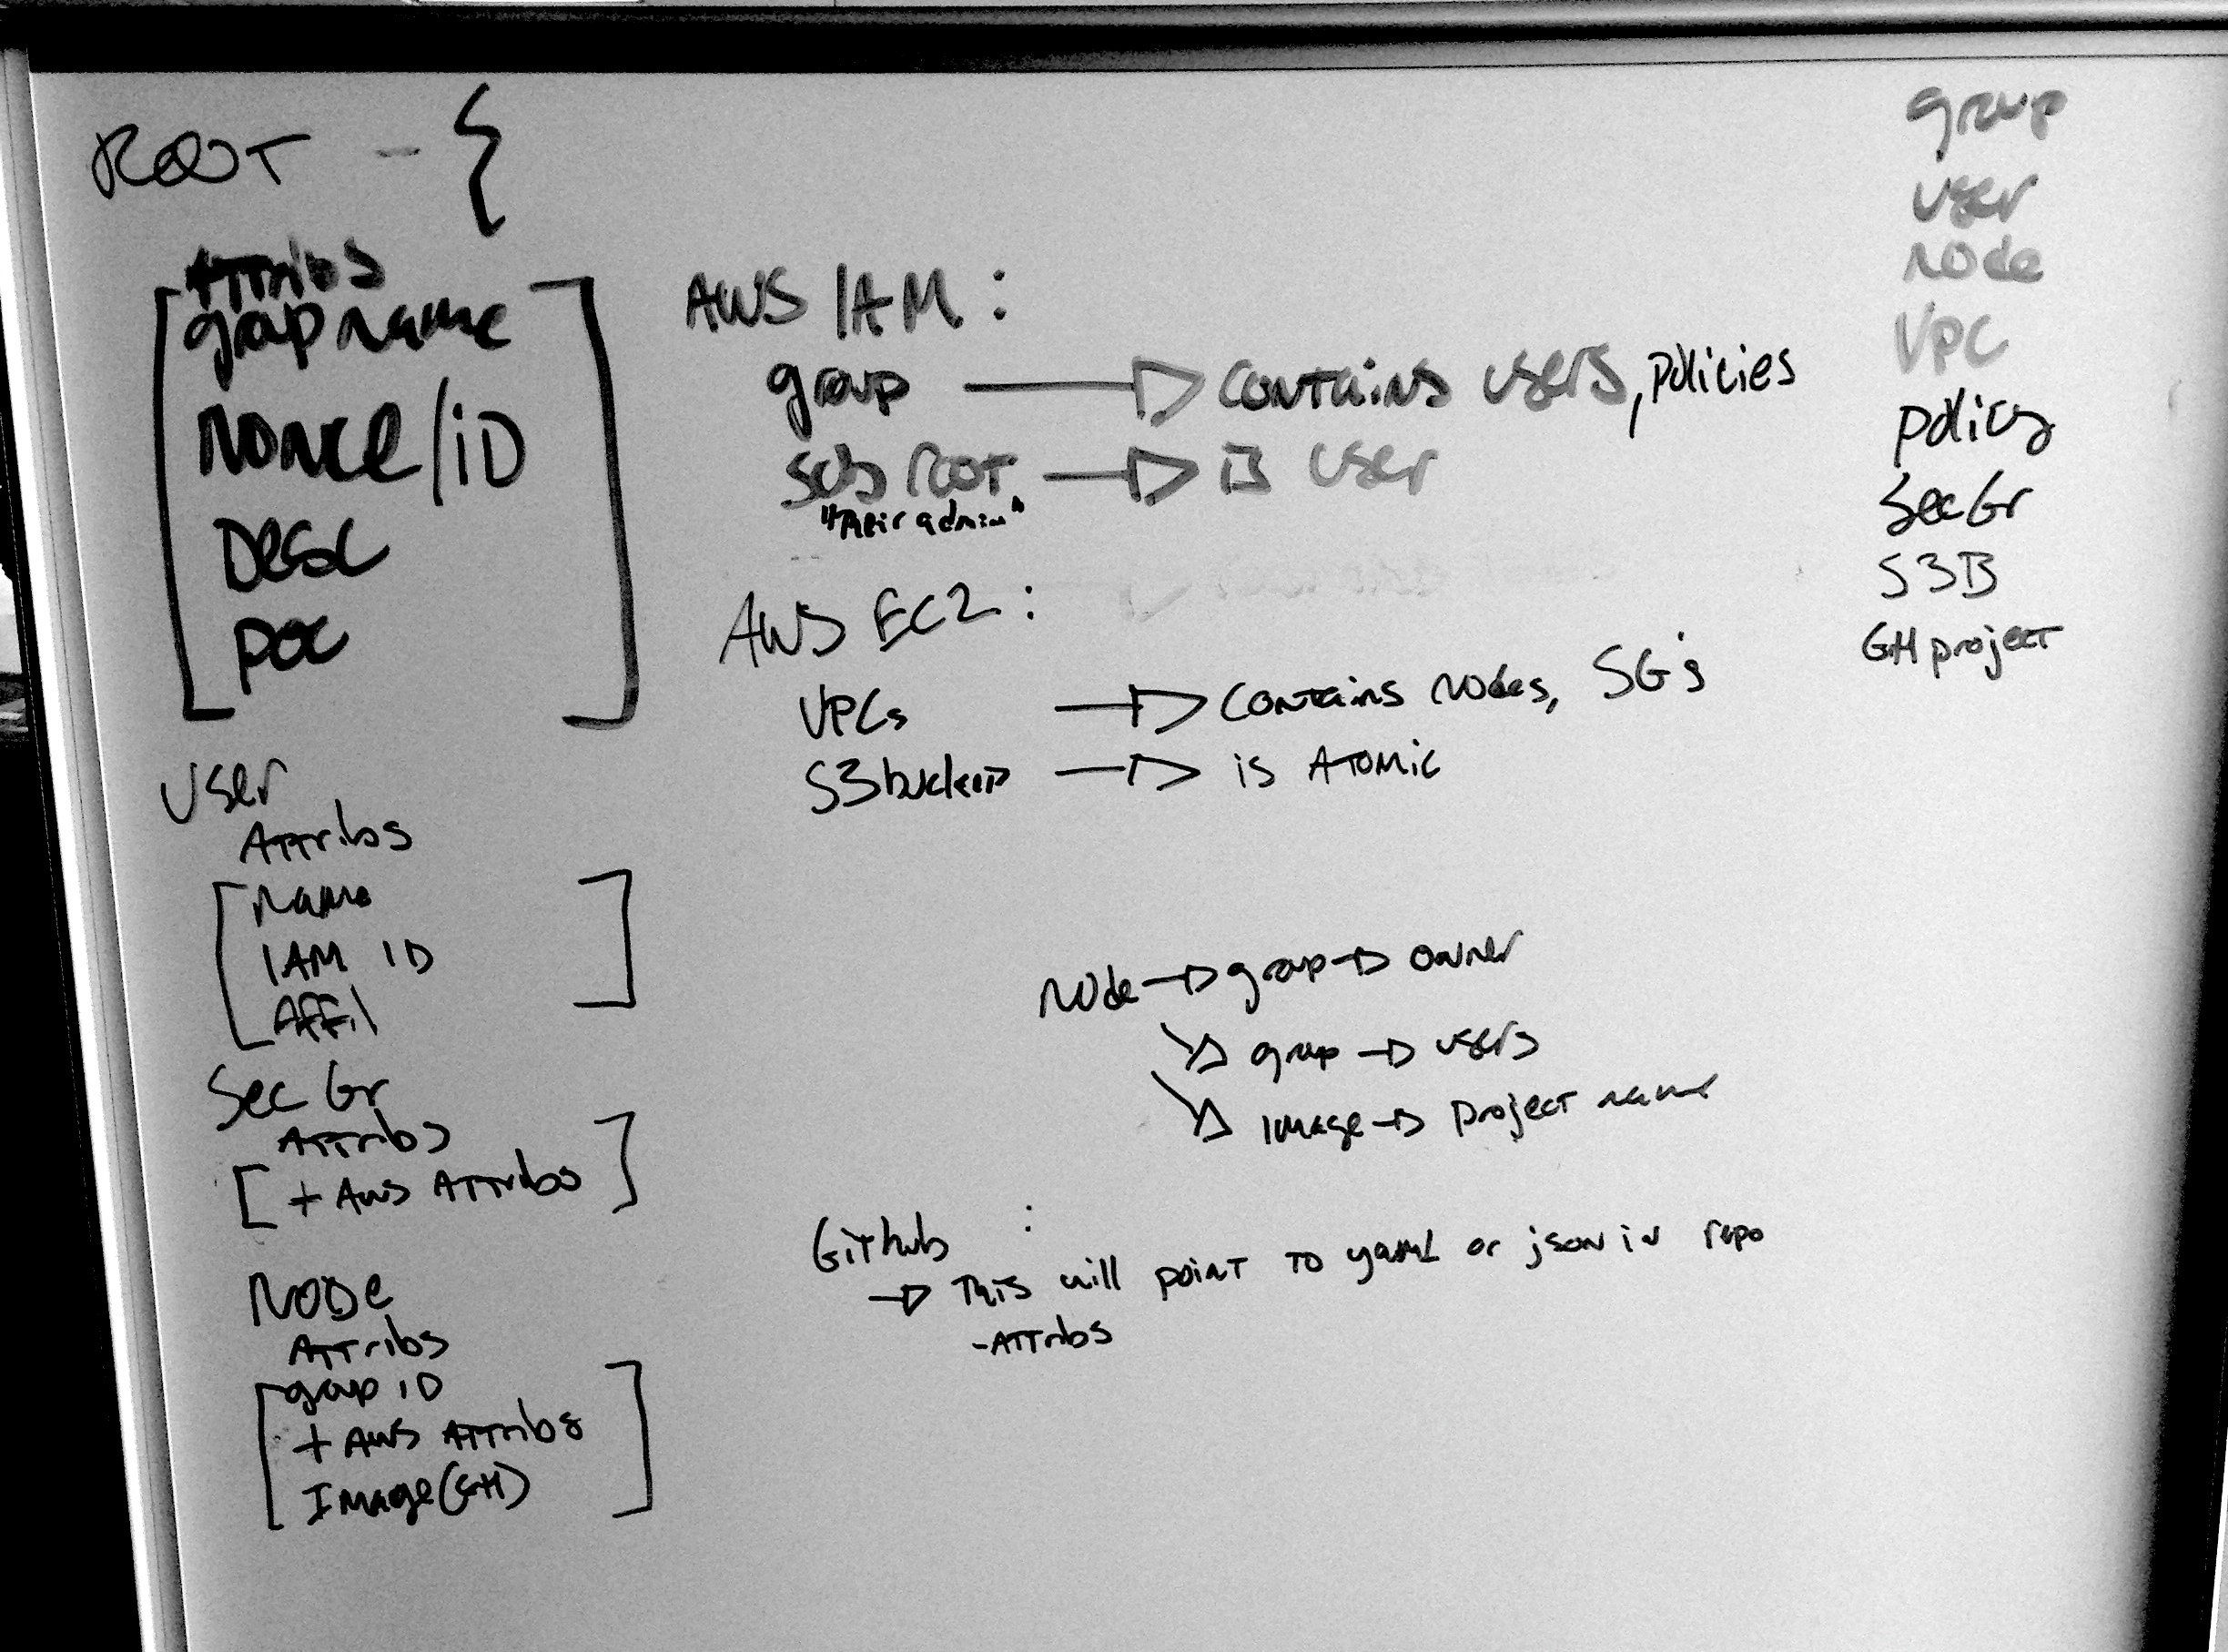 ROOT - {
Attribs
group name
Nonce/iD
Desc
POC
User
Attribs
Name
IAM ID
Affil
Sec Gr
Attribs
+ AWS Attribs
Node
Attribs
group ID
+ AWS Attribs
Image(GH)
AWS IAM :
group → contains users, policies
sub root → is user
"Their admin"
AWS EC2 :
VPCs → contains nodes, SG's
S3 bucket → is Atomic
Node → group → owner
↘ group → users
↘ image → project name
Github :
→ This will point to yaml or json in repo
- Attribs
group
user
node
VPC
policy
Sec Gr
S3B
GH project